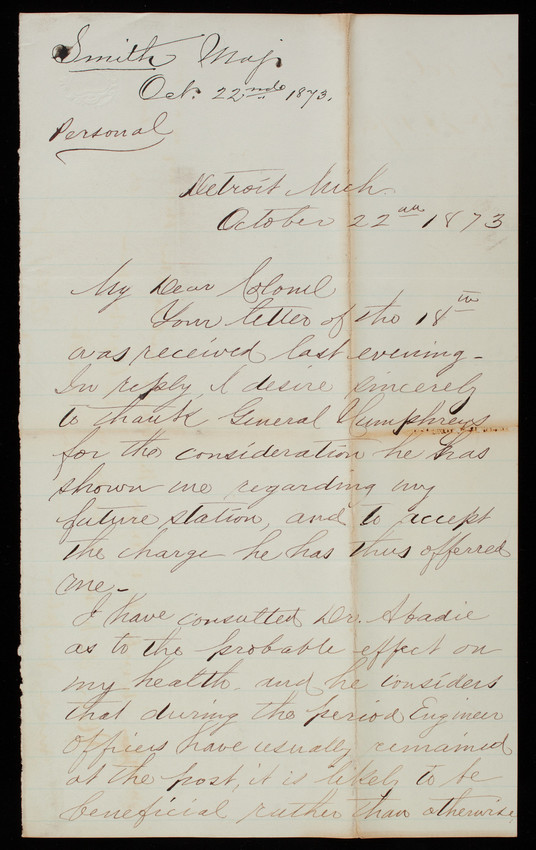 Smith Maj
Oct. 22nd 1873.
Personal
Detroit Mich.
October 22nd 1873
My Dear Colonel
Your letter of the 18th
was received last evening -
In reply, I desire sincerely
to thank General Humphreys
for the consideration he has
shown me regarding my
future station, and to accept
the charge he has thus offerred
me -
I have consulted Dr. Abadie
as to the probable effect on
my health and he considers
that during the period Engineer
officers have usually remained
at the post, it is likely to be
beneficial rather than otherwise.